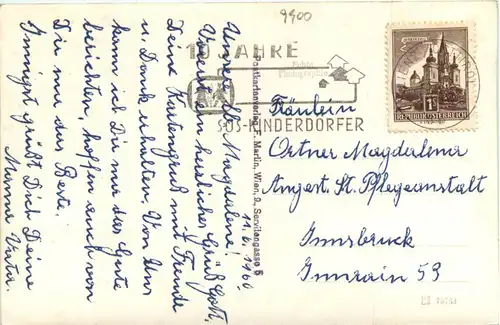 9900
10 JAHRE
Echte
Photographie
SOS-KINDERDÖRFER
MARIAZELL
1S
REPUBLIK ÖSTERREICH
11.6.1960
Unsere lb. Magdalena!
Vorerst ein herzliches Grüß Gott,
Deine Kartengruß mit Freude
u. Dank erhalten. Von Uns
kann ich Dir nur das Gute
berichten, hoffen auch von
Dir nur das Beste.
Innigst grüßt Dich Deine
Mama Vater.
Postkartenverlag F. Martin, Wien, 9., Servitengasse 5
Fräulein
Ortner Magdalena
Angest. St. Pflegeanstalt
Innsbruck
Innrain 53